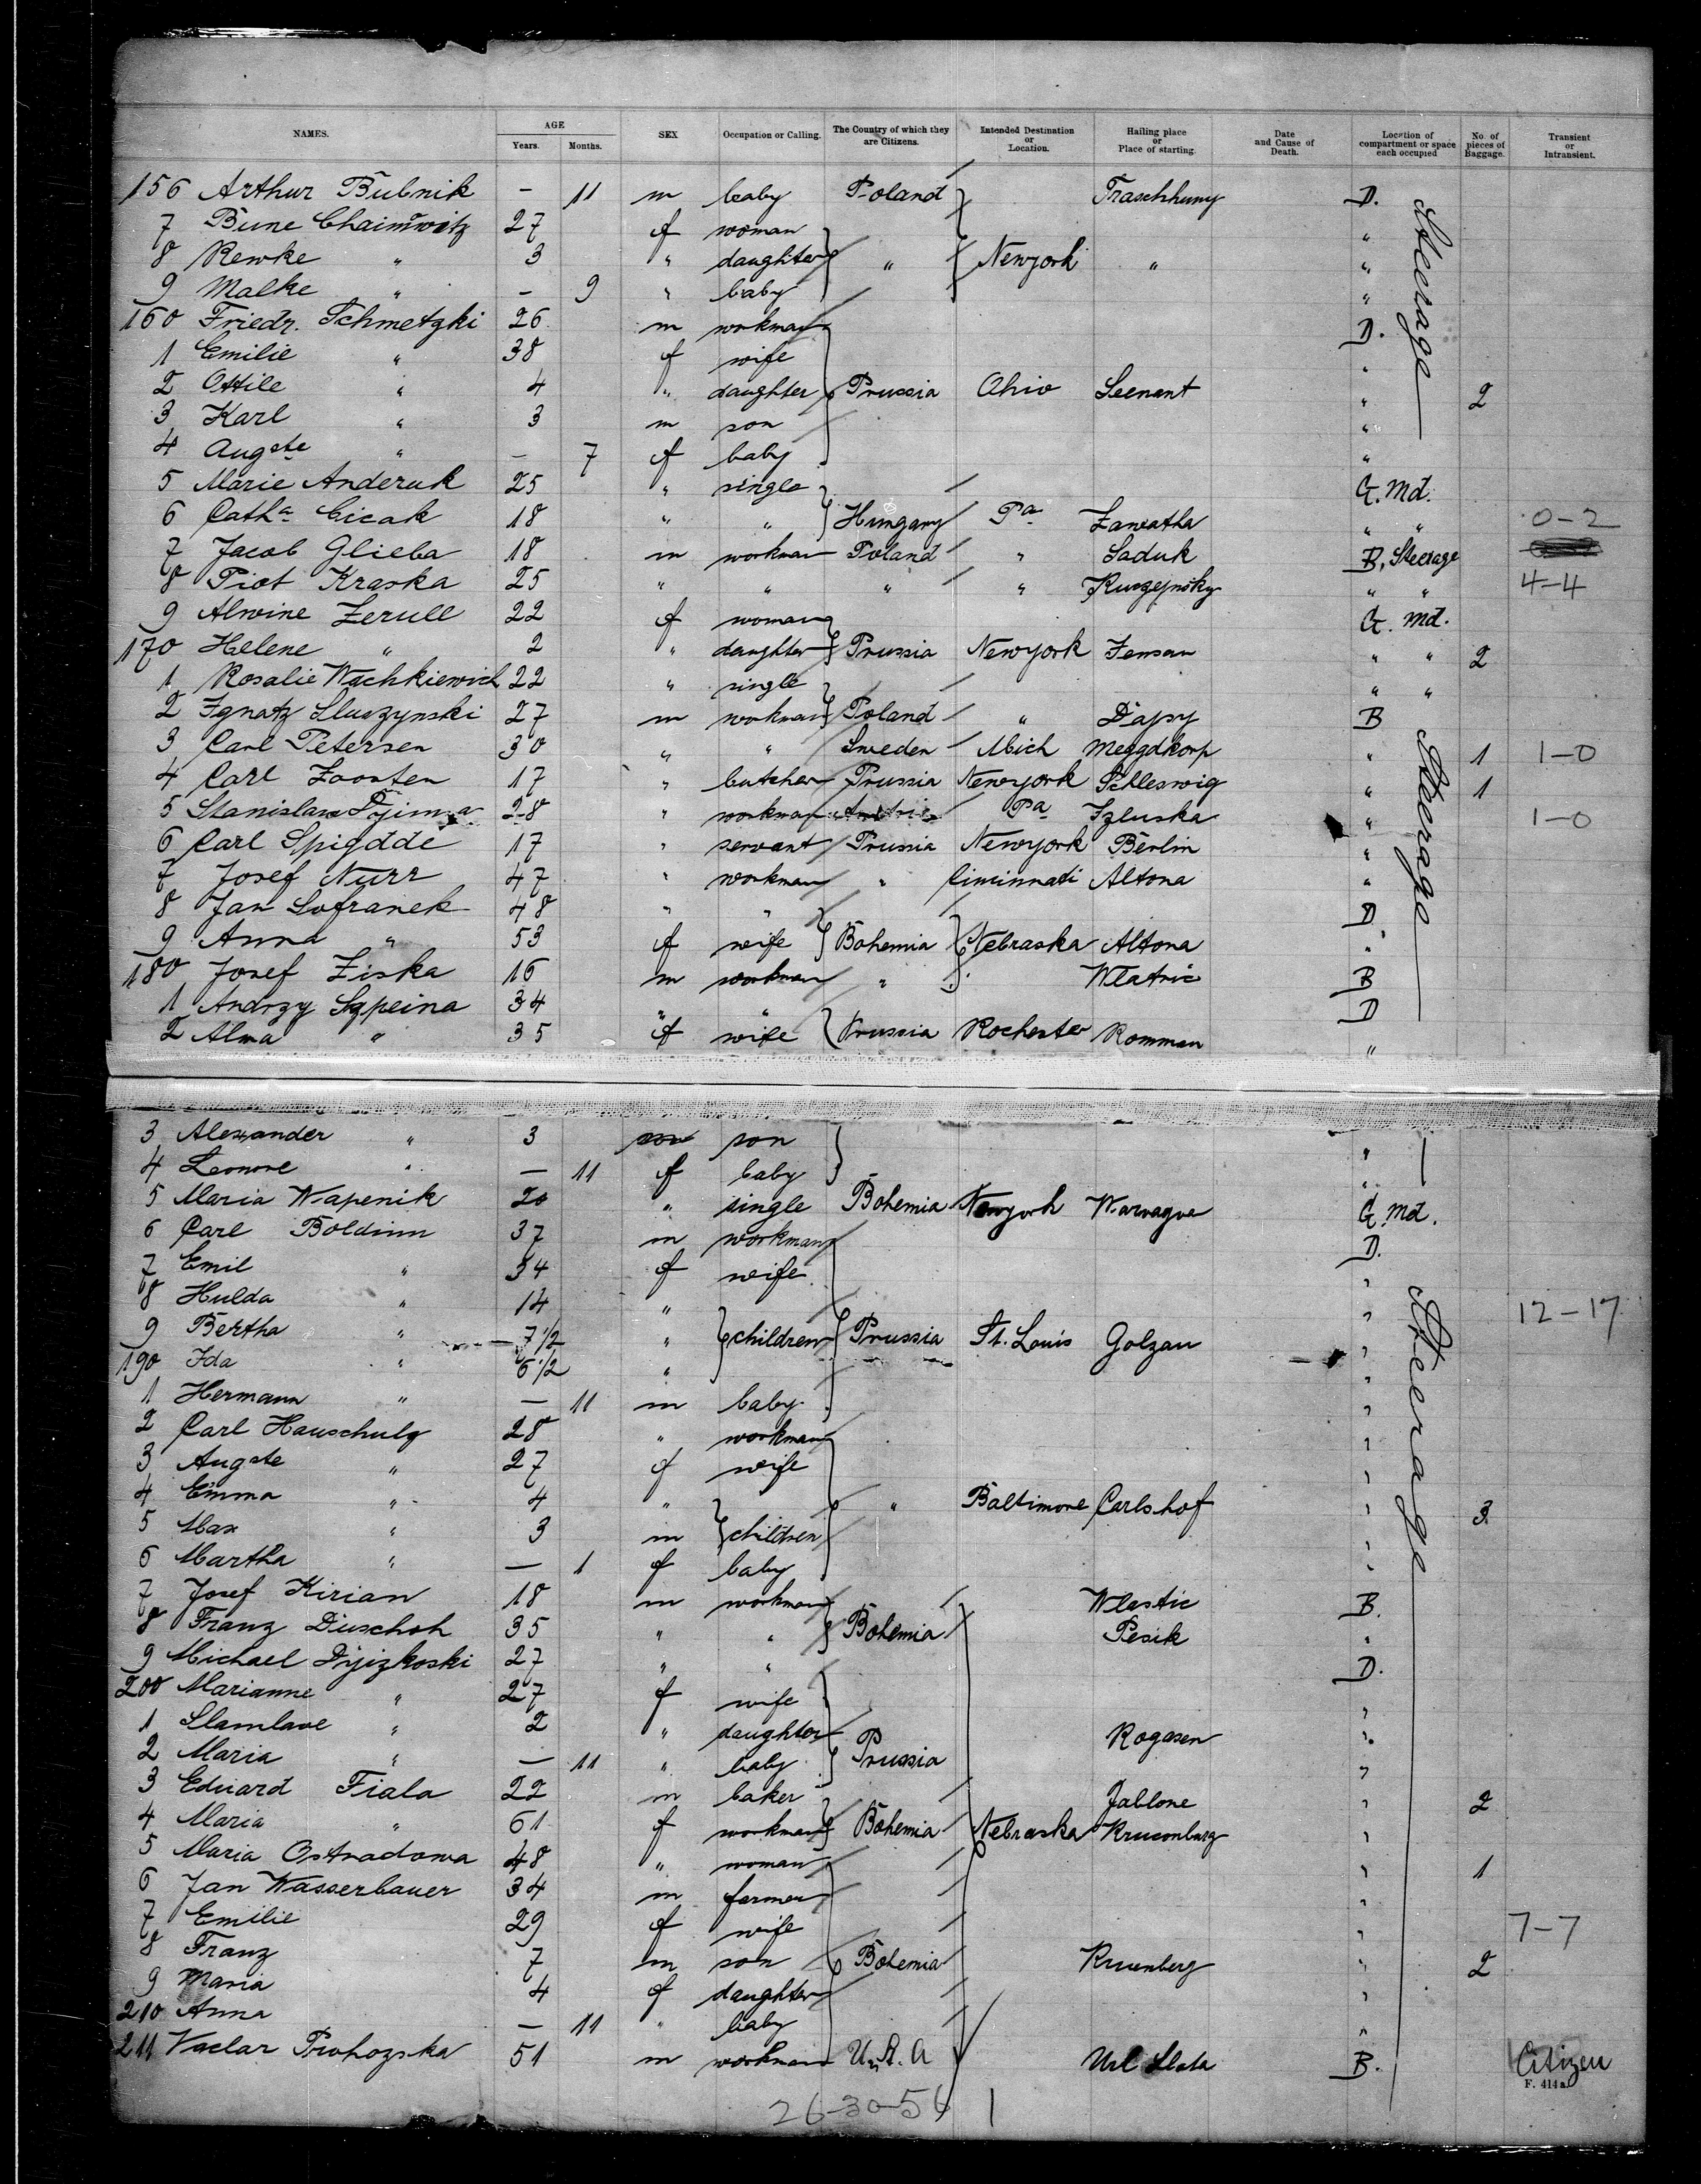 NAMES. AGE Years. Months. SEX Occupation or Calling. The Country of which they are Citizens. Intended Destination or Location. Hailing place or Place of starting. Date and Cause of Death. Location of compartment or space each occupied No. of pieces of Baggage. Transient or Intransient.
156 Arthur Bubnik — 11 m baby Poland Traschkuny D. Steerage
7 Bune Chaimowitz 27 f woman "
8 Rewke " 3 " daughter " Newyork " "
9 Malke " — 9 " baby "
160 Friedr. Schmetzki 26 m workman D.
1 Emilie " 38 f wife "
2 Ottile " 4 " daughter Prussia Ohio Seenant " 2
3 Karl " 3 m son "
4 Augste " — 7 f baby "
5 Marie Anderuk 25 " single G. Md.
6 Catha Cicak 18 " " Hungary Pa " " 0-2
7 Jacob Glieba 18 m workman Poland " Saduk B. Steerage
8 Piot Kraska 25 " " " " " " 4-4
9 Alwine Zerull 22 f woman G. Md.
170 Helene " 2 " daughter Prussia Newyork " " 2
1 Rosalie Wachkiewich 22 " single " "
2 Ignatz Sluszynski 27 m workman Poland " B
3 Carl Petersen 30 " " Sweden Mich " 1 1-0
4 Carl 17 " butcher Prussia Newyork Schleswig " 1
5 Stanislaw 28 " workman Pa Izluska " 1-0 Steerage
6 Carl Spigdde 17 " servant Prussia Newyork Berlin "
7 Josef Nurr 47 " workman " Cincinnati Altona "
8 Jan Sofranek 48 " " D
9 Anna " 53 f wife Bohemia Nebraska Altona "
180 Josef Ziska 16 m workman " Wlatric B
1 Andrzy Szpeina 34 " " D
2 Alma " 35 f wife Prussia Rochester Romman "
3 Alexander " 3 son "
4 Leonore " — 11 f baby "
5 Maria Wapenik 20 " single Bohemia Newyork G. Md.
6 Carl Boldinn 37 m workman D.
7 Emil " 34 f wife "
8 Hulda " 14 " " 12-17 Steerage
9 Bertha " 7 1/2 " children Prussia St. Louis Golzau "
190 Ida " 6 1/2 " "
1 Hermann " — 11 m baby "
2 Carl Hauschulz 28 " workman "
3 Augste " 27 f wife "
4 Emma " 4 " " Baltimore Carlshof " 3
5 Max " 3 m children "
6 Martha " — 1 f baby "
7 Josef Kirian 18 m workman Wlastic B.
8 Franz Duschek 35 " " Bohemia Pesik "
9 Michael 27 " " D.
200 Marianne " 27 f wife "
1 " 2 " daughter Rogasen "
2 Maria " — 11 " baby Prussia "
3 Eduard Fiala 22 m baker Jablone " 2
4 Maria " 61 f workman Bohemia Nebraska "
5 Maria Ostradowa 48 " woman " 1
6 Jan Wasserbauer 34 m farmer "
7 Emilie 29 f wife " 7-7
8 Franz 7 m son Bohemia " 2
9 Maria 4 f daughter "
210 Anna — 11 " baby "
211 Vaclav 51 m workman U.S.A B. Citizen
F. 414a.
26-30-56 1